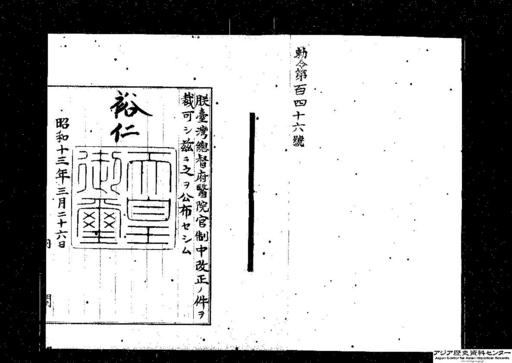 勅令第百四十六號
朕臺灣總督府醫院官制中改正ノ件ヲ
裁可シ茲ニ之ヲ公布セシム
裕仁
天皇
御璽
昭和十三年三月二十六日
アジア歴史資料センター
Japan Center for Asian Historical Records